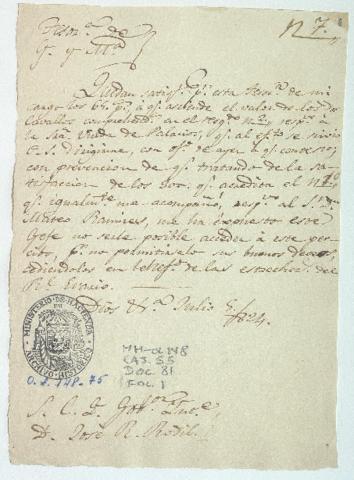 Tesor.a de
G. y M.a
N 7.
Quedan satisf.s p.r esta Tesor.a de mi
cargo los 64 p.s à q.e asciende el valor de los dos
Cavallos comprados en el
à la Sra Viuda de Palacios, q.e al efecto se sirvió
V.S. dirigirme, con of.o de ayer à q.e contesto;
con prevencion de q.e tratando de la sa-
tisfaccion de los dos q.e acredita el N.
q.e igualm.te me acompaña, resp.to al S.r
Mateo Ramires, me ha expuesto este
Gefe no serle posible acceder à este per-
cibo, p.r no permitirselo sus buenos deseos
cediendolos en benef.o de las estrecheses del
R.l Erario.
Dios &.a Julio 5/824.
MINISTERIO DE HACIENDA
ARCHIVO HISTORICO
O.L. 148-75
MH-OL 148
CAJ. 55
DOC. 81
FOL. 1
S. C. Y. Gob.or Int.e
D. José R. Rodil.